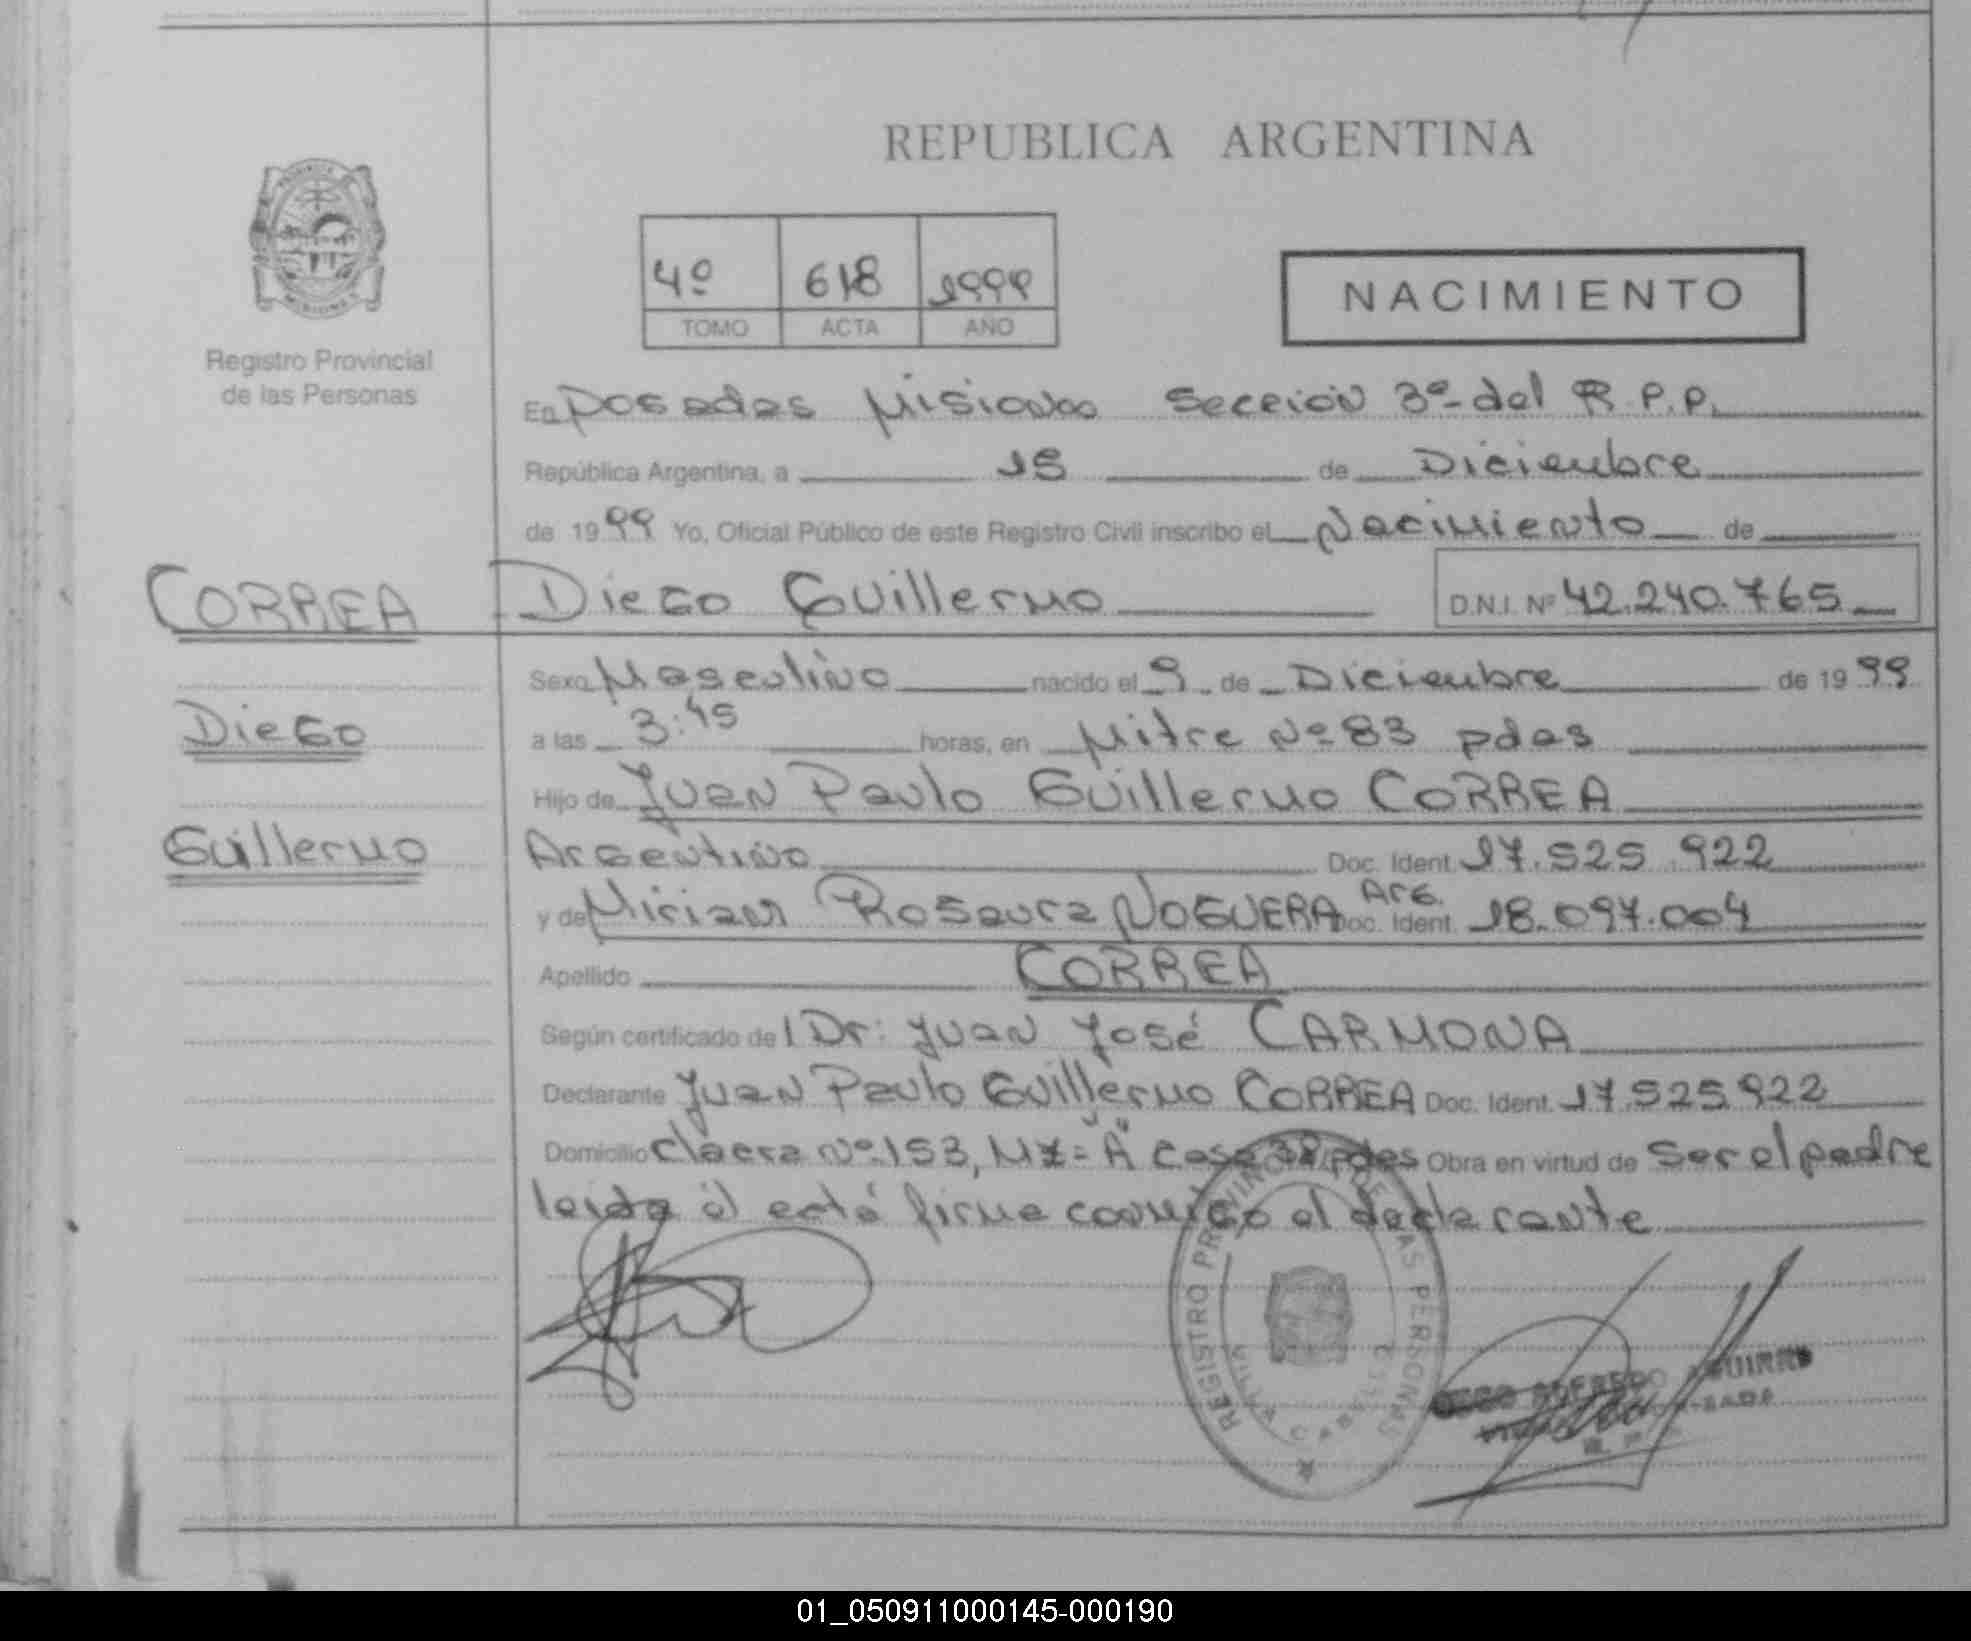 REPUBLICA ARGENTINA
4º 618 1999
TOMO ACTA AÑO
NACIMIENTO
Registro Provincial
de las Personas
En Posadas Misiones Sección 3º del R.P.P.
República Argentina, a 15 de Diciembre
de 1999 Yo, Oficial Público de este Registro Civil inscribo el Nacimiento de
CORREA Diego Guillermo D.N.I. Nº 42.240.765
Diego
Guillermo
Sexo Masculino nacido el 9 de Diciembre de 1999
a las 3:45 horas, en Mitre Nº 83 pdas
Hijo de Juan Paulo Guillermo CORREA
Argentino Doc. Ident. 17.525.922
y de Miriam Rosaura NOGUERA Arg. Doc. Ident. 18.097.004
Apellido CORREA
Según certificado de l Dr: Juan José CARMONA
Declarante Juan Paulo Guillermo CORREA Doc. Ident. 17.525.922
Domicilio Nº 153, Mz= "A" Casa 38 pdas Obra en virtud de Ser el padre
leída el está firma conmigo el declarante
REGISTRO PROVINCIAL DE LAS PERSONAS
VILLA CABELLO
01_050911000145-000190